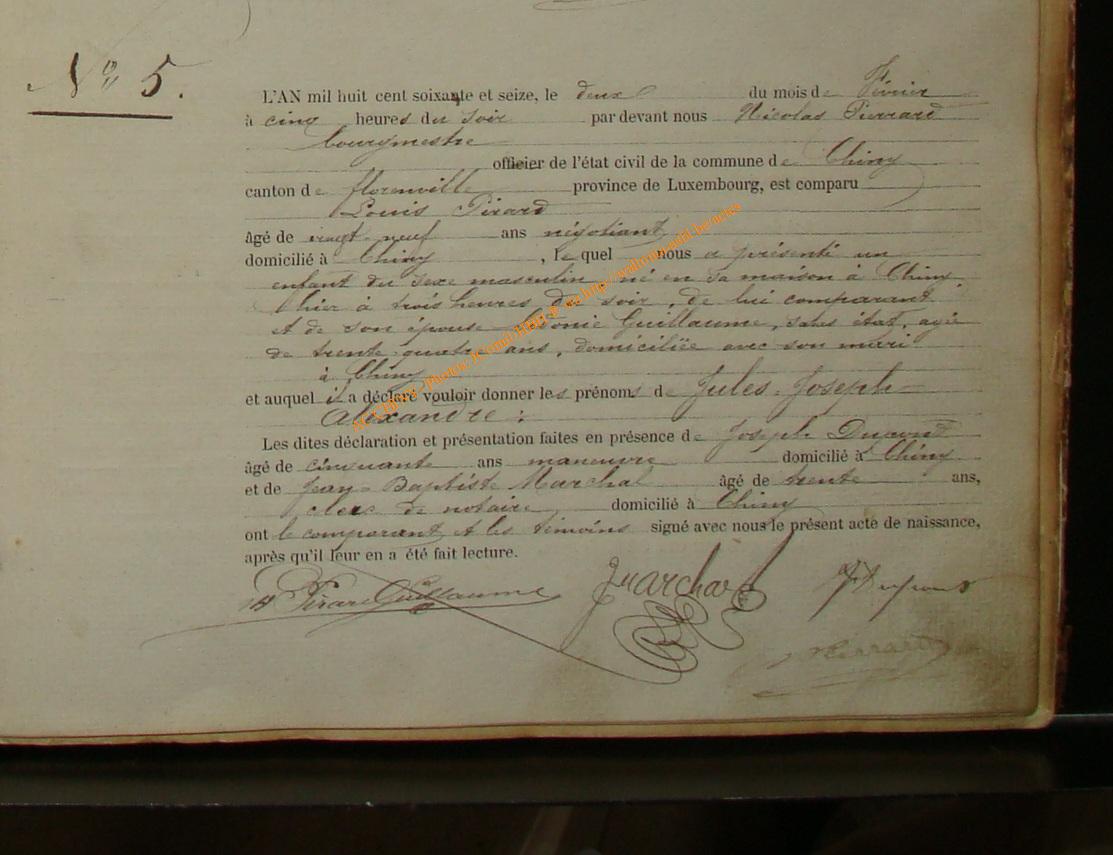 N° 5.
L'AN mil huit cent soixante et seize, le deux du mois de Février
à cinq heures du soir par devant nous Nicolas Pierrard
bourgmestre
officier de l'état civil de la commune de Chiny
canton de florenville province de Luxembourg, est comparu
Louis Pirard
âgé de vingt-neuf ans négotiant
domicilié à Chiny, lequel nous a présenté un
enfant du sexe masculin né en sa maison à Chiny
hier à trois heures du soir, de lui comparant
et de son épouse Léonie Guillaume, sans état, agée
de trente-quatre ans, domiciliée avec son mari
à Chiny
et auquel il a déclaré vouloir donner les prénoms de Jules-Joseph
Alexandre :
Les dites déclaration et présentation faites en présence de Joseph
âgé de cinquante ans maneuvre domicilié à Chiny
et de Jean-Baptiste Marchal âgé de trente ans,
clerc de notaire domicilié à Chiny
ont le comparant et les témoins signé avec nous le présent acte de naissance,
après qu'il leur en a été fait lecture.
Pirard Guillaume JMarchal
Pierrard